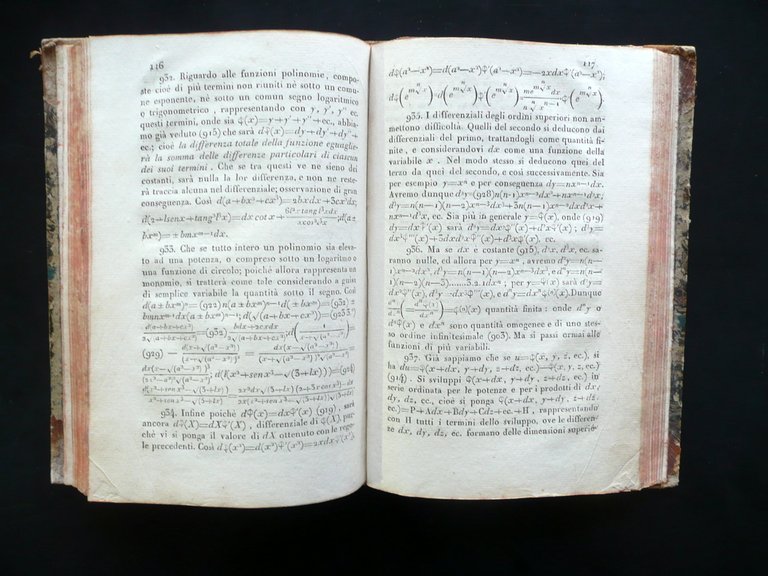 116
932. Riguardo alle funzioni polinomie, compo-
ste cioè di più termini non riuniti nè sotto un comu-
ne esponente, nè sotto un comun segno logaritmico
o trigonometrico, rappresentando con y, y', y'' ec.
questi termini, onde sia φ(x)=y+y'+y''+ec., abbia-
mo già veduto (915) che sarà dφ(x)=dy+dy'+dy''+
ec.; cioè la differenza totale della funzione eguaglie-
rà la somma delle differenze particolari di ciascun
dei suoi termini. Che se tra questi ve ne sieno dei
costanti, sarà nulla la lor differenza, e non ne reste-
rà traccia alcuna nel differenziale; osservazione di gran
conseguenza. Così d(a+bx²+cx³)=2bxdx+3cx²dx;
933. Che se tutto intero un polinomio sia eleva-
to ad una potenza, o compreso sotto un logaritmo o
una funzione di circolo; poichè allora rappresenta un
monomio, si tratterà come tale considerando a guida
di semplice variabile la quantità sotto il segno. Così
d(a±bxᵐ)ⁿ=(922)n(a±bxᵐ)ⁿ⁻¹d(±bxᵐ)=(932)±
934. Infine poichè dφ(x)=dxφ'(x) (919), sarà
ancora dφ(X)=dXφ'(X), differenziale di φ(X), per-
chè vi si ponga il valore di dX ottenuto con le rego-
le precedenti. Così dφ(x²)=d(x²)φ'(x²)=2xdxφ'(x²),
117
dφ(a²−x²)=d(a²−x²)φ'(a²−x²)=−2xdxφ'(a²−x²);
935. I differenziali degli ordini superiori non am-
mettono difficoltà. Quelli del secondo si deducono dai
differenziali del primo, trattandogli come quantità fi-
nite, e considerandovi dx come una funzione della
variabile x. Nel modo stesso si deducono quei del
terzo da quei del secondo, e così successivamente. Sia
per esempio y=xⁿ e per conseguenza dy=nxⁿ⁻¹dx.
nxⁿ⁻¹d³x, ec. Sia più in generale y=φ(x), onde (919)
dy=dxφ'(x) sarà d²y=dx²φ''(x)+d²xφ'(x); d³y=
dx³φ'''(x)+3dxd²xφ''(x)+d³xφ'(x), ec.
936. Ma se dx è costante (915), d²x, d³x, ec. sa-
ranno nulle, ed allora per y=xⁿ, avremo d²y=n(n−
1)xⁿ⁻²dx², d³y=n(n−1)(n−2)xⁿ⁻³dx³, e dⁿy=n(n−
1)(n−2)(n−3)......3.2.1dxⁿ; per y=φ(x) sarà d²y
quantità finita: onde dⁿy o
dⁿφ(x) e dxⁿ sono quantità omogenee e di uno stes-
so ordine infinitesimale (903). Ma si passi ormai alle
funzioni di più variabili.
937. Già sappiamo che se u=φ(x, y, z, ec.), si
ha du=φ(x+dx, y+dy, z+dz, ec.)−φ(x, y, z, ec.)
(914). Si sviluppi φ(x+dx, y+dy, z+dz, ec.) in
serie ordinata per le potenze e per i prodotti di dx,
dy, dz, ec., cioè si ponga φ(x+dx, y+dy, z+dz,
ec.)=P+Adx+Bdy+Cdz+ec.+Π, rappresentando
con Π tutti i termini dello sviluppo, ove le differen-
ze dx, dy, dz, ec. formano delle dimensioni superio-